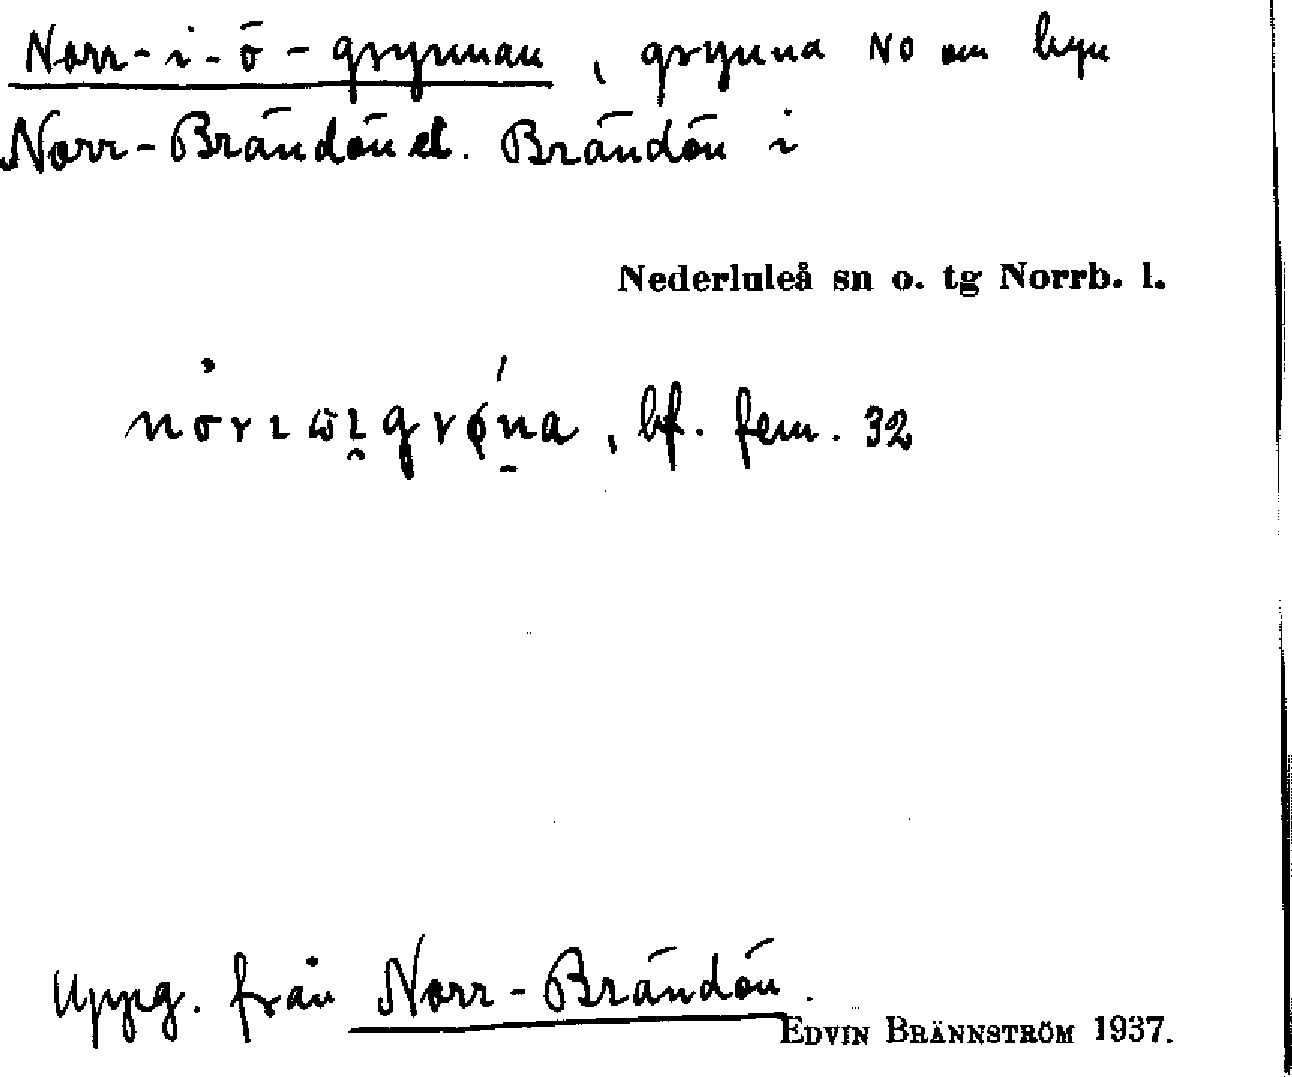 Norr-i-ö-grynnan, grynna NO om byn
Norr-Brändön el. Brändön i
Nederluleå sn o. tg Norrb. l.
bf. fem. 32
Uppg. från Norr-Brändön.
EDVIN BRÄNNSTRÖM 1937.